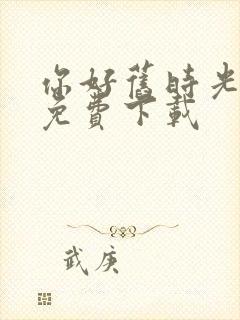 你好舊時光
免費下載
武庚